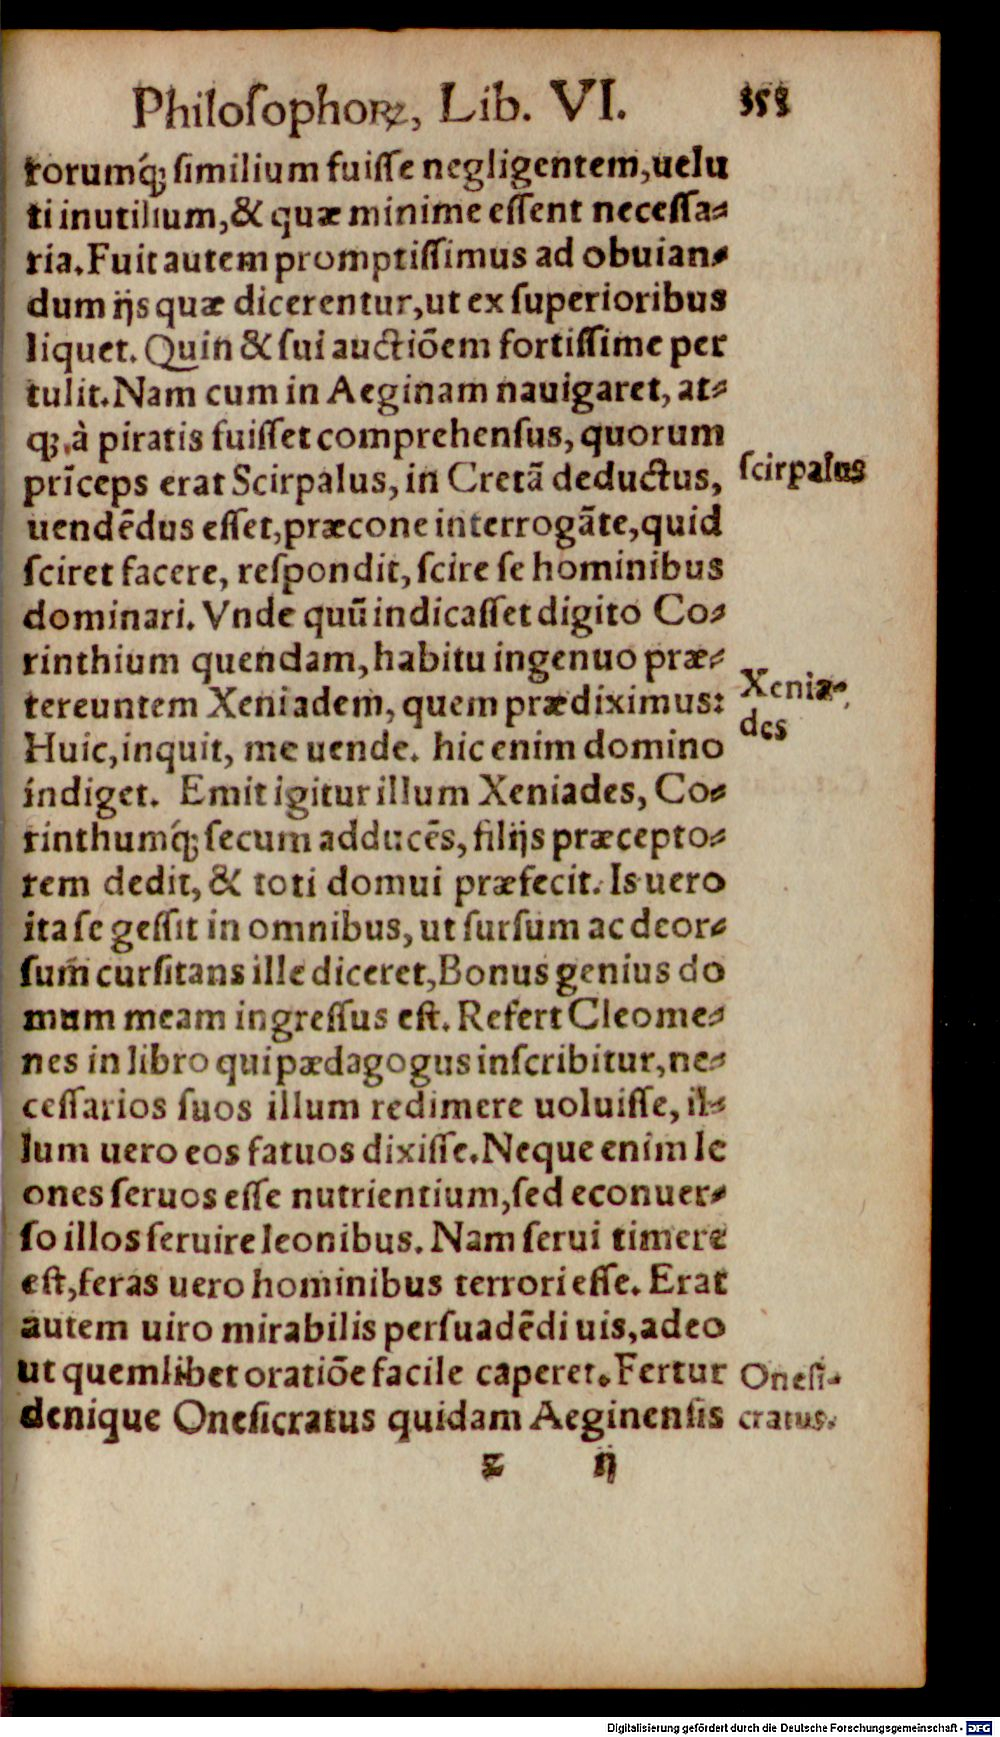 Philosophoꝝ, Lib. VI. 353
rorumq́; similium fuiſſe negligentem,uelu
ti inutilium,& quæ minime eſſent neceſſa⸗
ria.Fuit autem promptiſſimus ad obuian⸗
dum ijs quæ dicerentur,ut ex ſuperioribus
liquet. Quin & ſui auctiõem fortiſſime per
tulit.Nam cum in Aeginam nauigaret, at⸗
q;,à piratis fuiſſet comprehenſus, quorum
prĩceps erat Scirpalus, in Cretã deductus,
ſcirpalus
uendẽdus eſſet,præcone interrogãte,quid
ſciret facere, reſpondit, ſcire ſe hominibus
dominari. Vnde quũ indicaſſet digito Co⸗
rinthium quendam, habitu ingenuo præ⸗
tereuntem Xeniadem, quem prædiximus:
Xenia⸗
des
Huic,inquit, me uende. hic enim domino
indiget. Emit igitur illum Xeniades, Co⸗
rinthumq́; ſecum adducẽs, filijs præcepto⸗
rem dedit, & toti domui præfecit. Is uero
ita ſe geſſit in omnibus, ut ſurſum ac deor⸗
ſum curſitans ille diceret,Bonus genius do
mum meam ingreſſus eſt. Refert Cleome⸗
nes in libro qui pædagogus inſcribitur,ne⸗
ceſſarios ſuos illum redimere uoluiſſe, il⸗
lum uero eos fatuos dixiſſe.Neque enim le
ones ſeruos eſſe nutrientium,ſed econuer⸗
ſo illos ſeruire leonibus. Nam ſerui timere
eſt,feras uero hominibus terrori eſſe. Erat
autem uiro mirabilis perſuadẽdi uis,adeo
ut quemlibet oratiõe facile caperet. Fertur
denique Oneſicratus quidam Aeginenſis
Oneſi⸗
cratus.
z ij
Digitalisierung gefördert durch die Deutsche Forschungsgemeinschaft - DFG